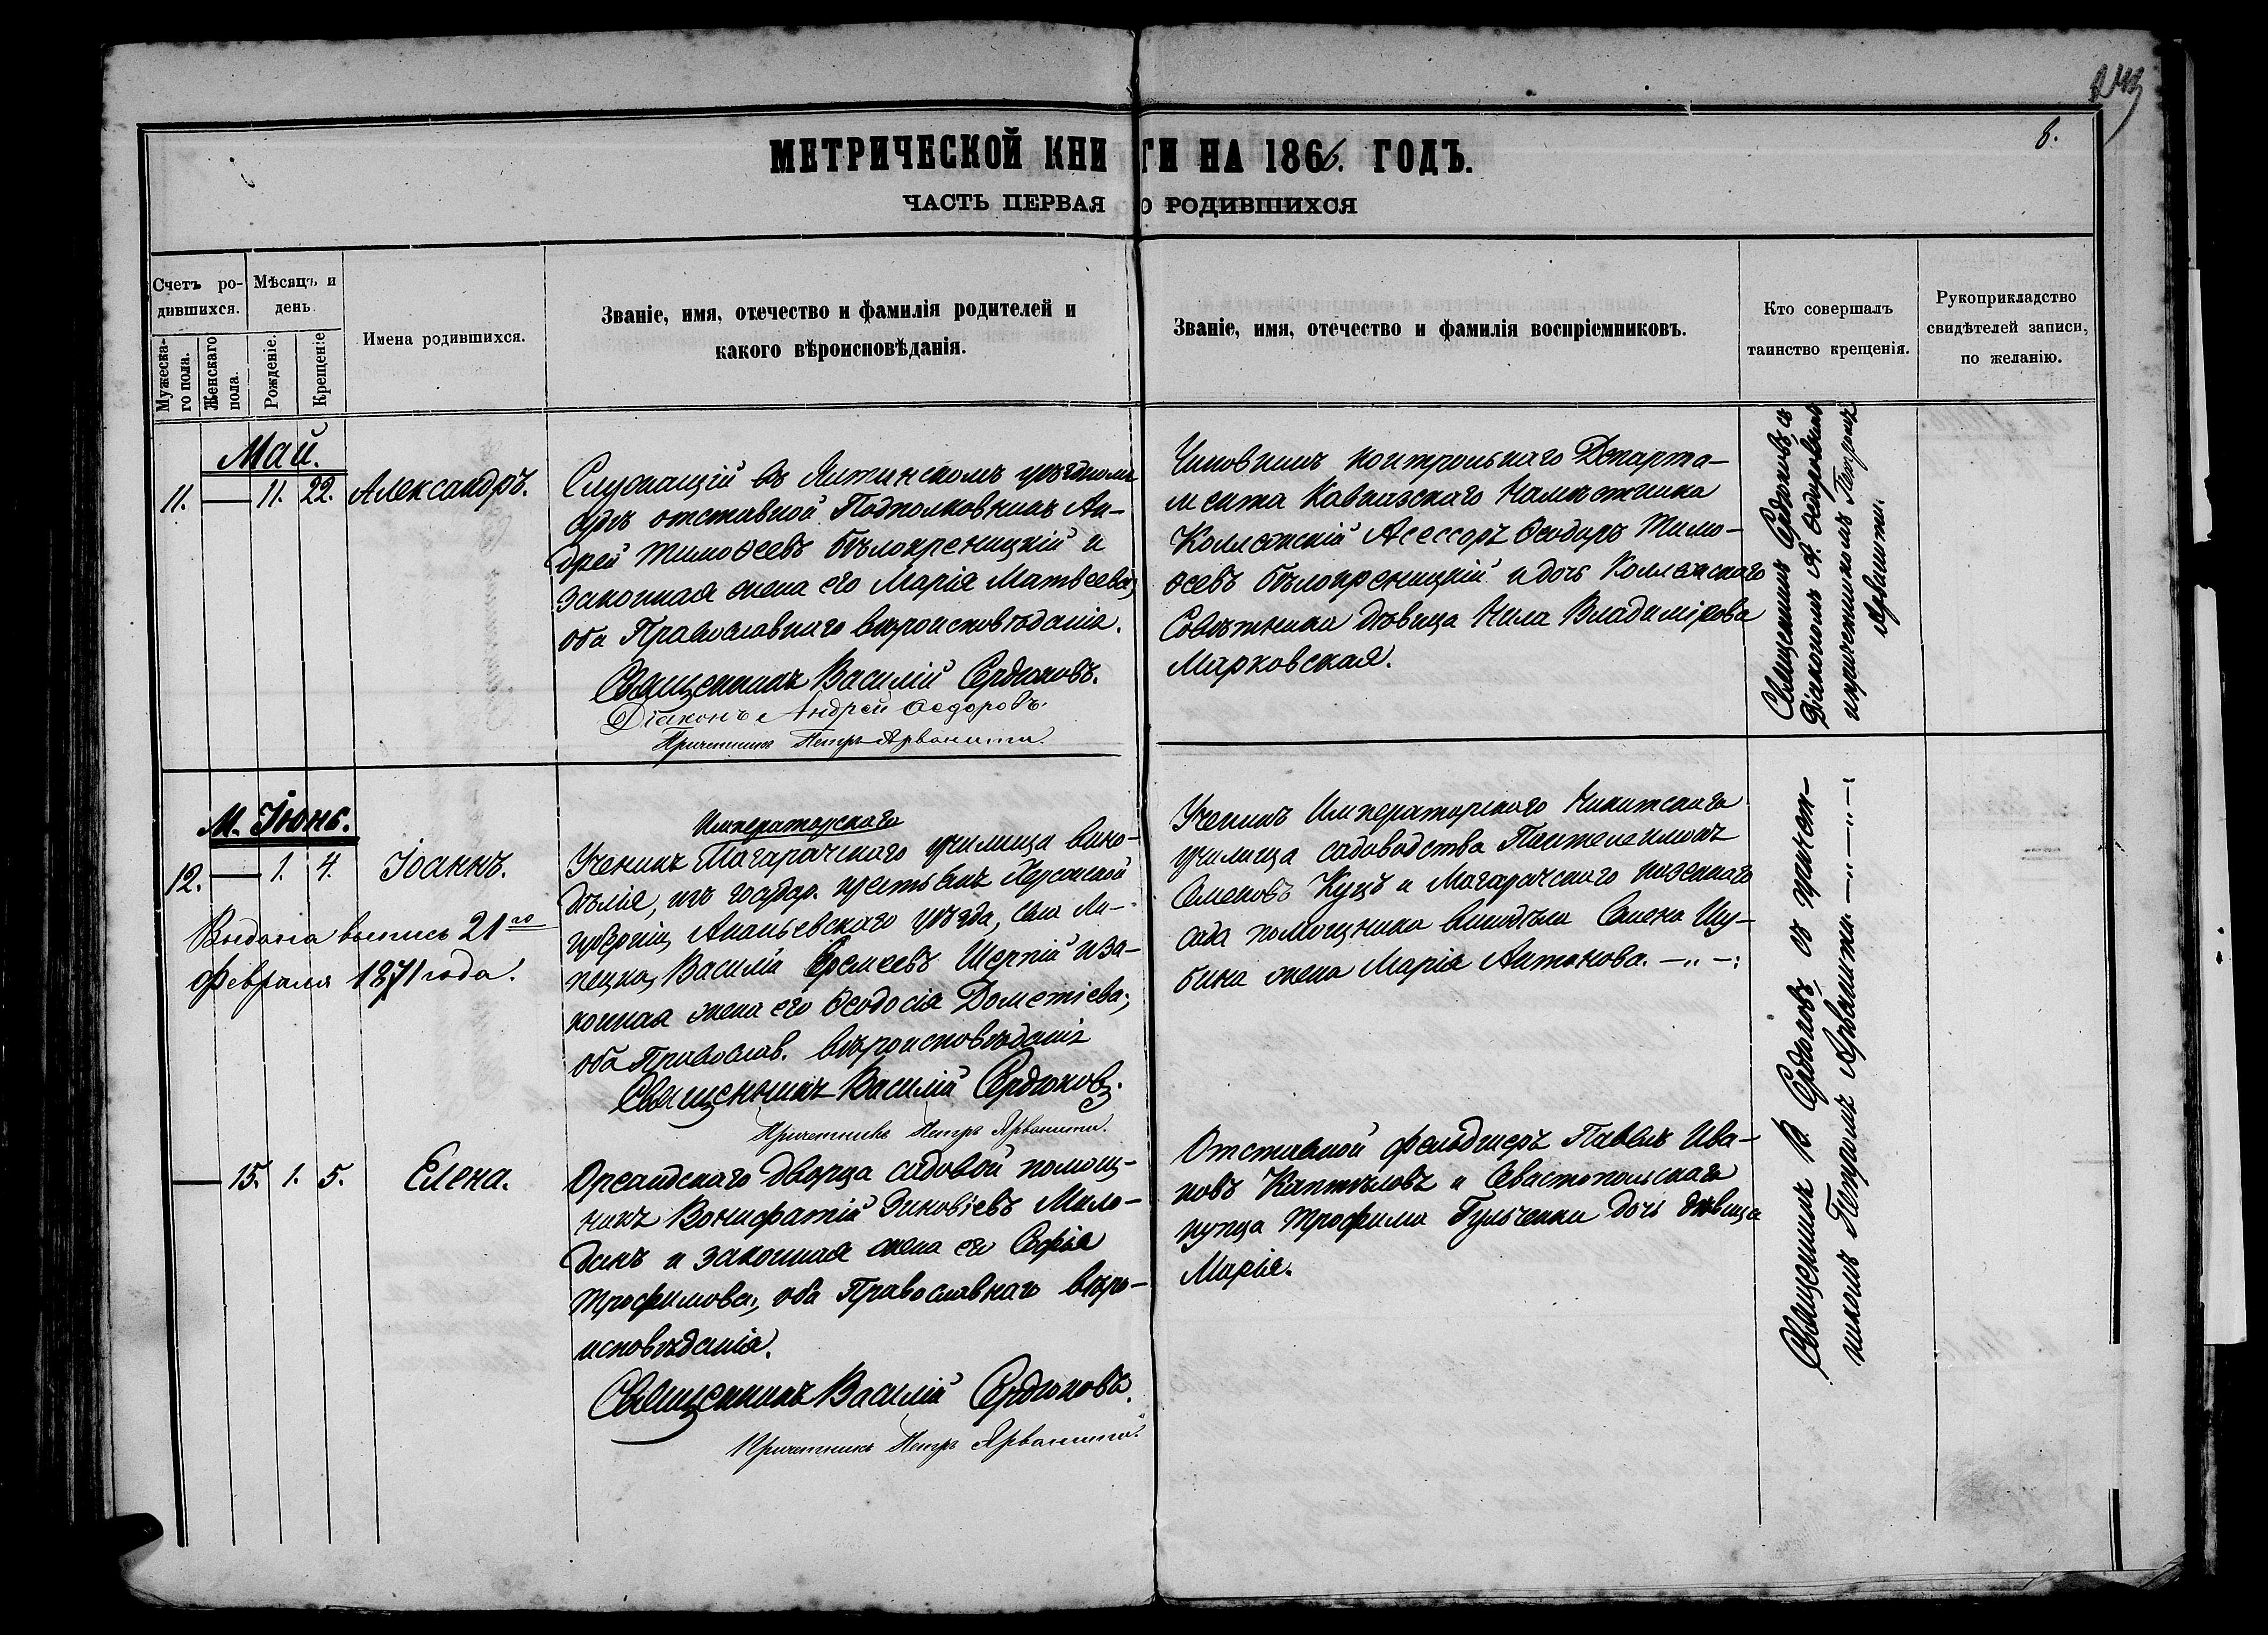 243
8.
МЕТРИЧЕСКОЙ КНИГИ НА 1866. ГОДЪ.
ЧАСТЬ ПЕРВАЯ О РОДИВШИХСЯ
Счетъ ро-
дившихся.
Мужеска-
го пола.
Женскаго
пола.
Мѣсяцъ и
день.
Рожденіе.
Крещеніе
Имена родившихся.
Званіе, имя, отечество и фамилія родителей и
какого вѣроисповѣданія.
Званіе, имя, отечество и фамилія воспріемниковъ.
Кто совершалъ
таинство крещенія.
Рукоприкладство
свидѣтелей записи,
по желанію.
Май.
11. — 11. 22. Александръ.
Служащій въ Ялтинскомъ уѣздномъ
судѣ отставной Подполковникъ Ан-
дрей Тимоѳеевъ Бѣлокреницкій и
законная жена его Марія Матвеева,
оба Православнаго вѣроисповѣданія.
Священникъ Василій Сердюковъ.
Діаконъ Андрей Ѳедоровъ.
Причетникъ Петръ Арванити.
Чиновникъ контрольнаго Департа-
мента Кавказскаго Намѣстника
Коллежскій Асессоръ Ѳеодоръ Тимо-
ѳеевъ Бѣлокреницкій и дочь Коллежскаго
Совѣтника дѣвица Нила Владимірова
Марковская.
Священникъ Сердюковъ съ
Діакономъ А. Ѳедоровымъ
и причетникомъ Петромъ
Арванити.
М. Іюнь.
12. — 1. 4. Іоаннъ.
Выдана выпись 21го
Февраля 1871 года.
Императорскаго
Ученикъ Магарачскаго училища вино-
дѣлія, изъ государ. крестьянъ Херсонской
губерніи, Ананьевскаго уѣзда, села Ли-
пецка, Василій Еремеевъ Шерпій и за-
конная жена его Ѳеодосія Дометіева,
оба Православ. вѣроисповѣданія
Священникъ Василій Сердюковъ.
Причетникъ Петръ Арванити.
Ученикъ Императорскаго Никитскаго
училища садоводства Пантелеимонъ
Семеновъ Куцъ и Магарачскаго казеннаго
сада помощника винодѣла Семена Шу-
бина жена Марія Антонова. —"—:
Священникъ В. Сердюковъ съ причет-
никомъ Петромъ Арванити —"—"—:
— 15. 1. 5. Елена.
Ореандскаго дворца садовой помощ-
никъ Вонифатій Зиновіевъ Мило-
данъ и законная жена его Софія
Трофимова, оба Православнаго вѣро-
исповѣданія.
Священникъ Василій Сердюковъ.
Причетникъ Петръ Арванити.
Отставной фельдшеръ Павелъ Ива-
новъ Каптѣловъ и Севастопольскаго
купца Трофима Гульченки дочь дѣвица
Марія.